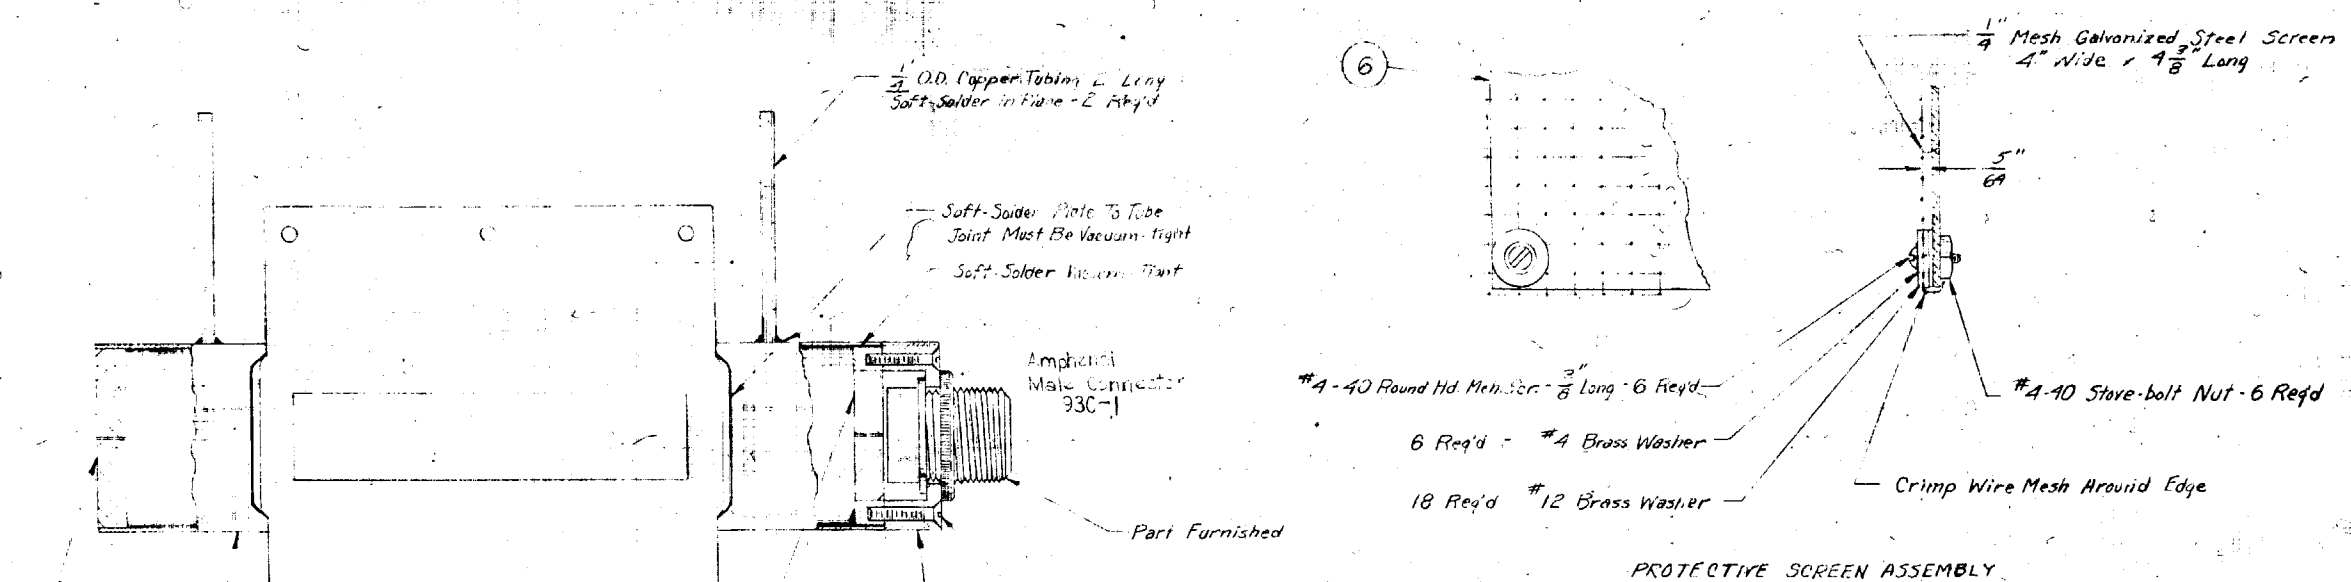 1/4 O.D. Copper Tubing 2" Long
Soft-Solder in Place - 2 Req'd
Soft-Solder Plate To Tube
Joint Must Be Vacuum-tight
Soft-Solder Vacuum Tight
Amphenol
Male Connector
93C-1
Part Furnished
6
1/4" Mesh Galvanized Steel Screen
4" Wide x 4 3/8" Long
5/64"
#4-40 Round Hd. Mch. Scr. - 3/8" Long - 6 Req'd
6 Req'd - #4 Brass Washer
18 Req'd #12 Brass Washer
#4-40 Stove-bolt Nut - 6 Req'd
Crimp Wire Mesh Around Edge
PROTECTIVE SCREEN ASSEMBLY